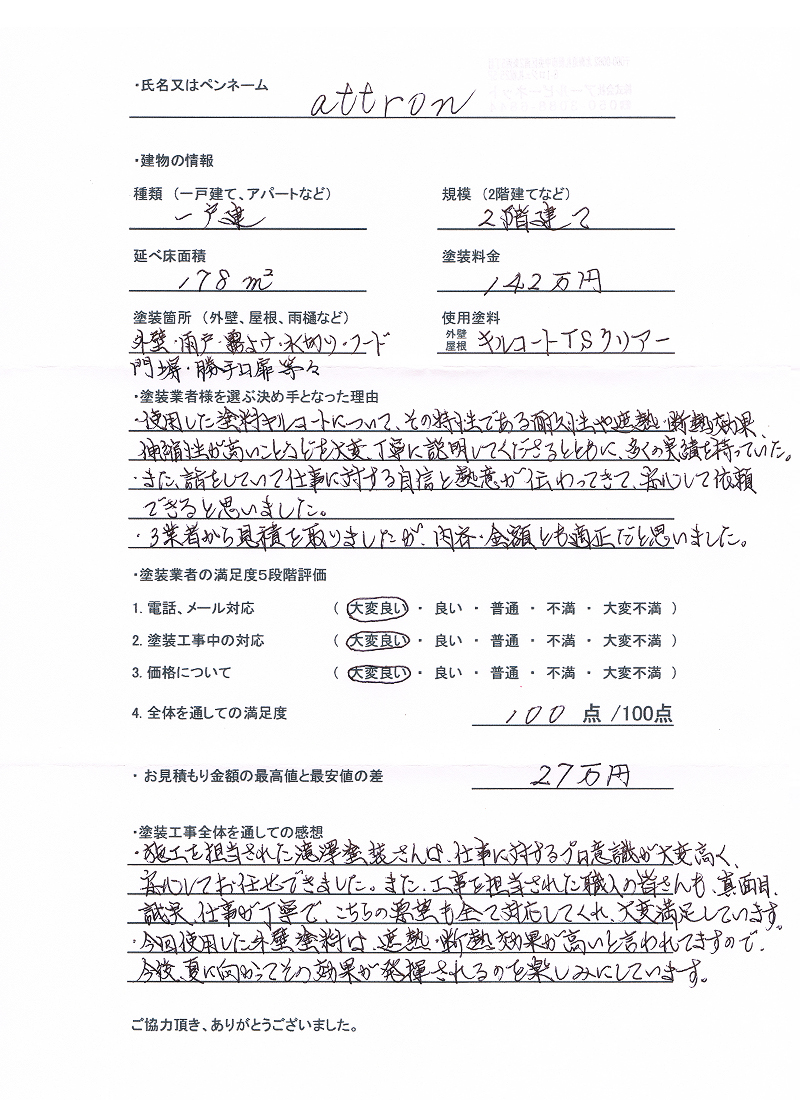 ・氏名又はペンネーム
attron
・建物の情報
種類 （一戸建て、アパートなど）
一戸建
規模 （2階建てなど）
2階建て
延べ床面積
178 m²
塗装料金
142万円
塗装箇所 （外壁、屋根、雨樋など）
外壁・雨戸・霧よけ・水切り・フード
門塀・勝手口扉等々
使用塗料
外壁
屋根
キルコートTSクリアー
・塗装業者様を選ぶ決め手となった理由
・使用した塗料キルコートについて、その特性である耐久性や遮熱・断熱効果、
伸縮性が高いことなども大変、丁寧に説明してくださるとともに、多くの実績を持っていた。
・また、話をしていて仕事に対する自信と熱意が伝わってきて、安心して依頼
できると思いました。
・3業者から見積を取りましたが、内容・金額とも適正だと思いました。
・塗装業者の満足度5段階評価
1. 電話、メール対応 （ 大変良い ・ 良い ・ 普通 ・ 不満 ・ 大変不満 ）
2. 塗装工事中の対応 （ 大変良い ・ 良い ・ 普通 ・ 不満 ・ 大変不満 ）
3. 価格について （ 大変良い ・ 良い ・ 普通 ・ 不満 ・ 大変不満 ）
4. 全体を通しての満足度 100 点 /100点
・ お見積もり金額の最高値と最安値の差 27万円
・塗装工事全体を通しての感想
・施工を担当された滝澤塗装さんは、仕事に対するプロ意識が大変高く、
安心してお任せできました。また、工事を担当された職人の皆さんも、真面目、
誠実、仕事が丁寧で、こちらの要望も全て対応してくれ、大変満足しています。
・今回使用した外壁塗料は、遮熱・断熱効果が高いと言われてますので、
今後、夏に向かってその効果が発揮されるのを楽しみにしています。
ご協力頂き、ありがとうございました。